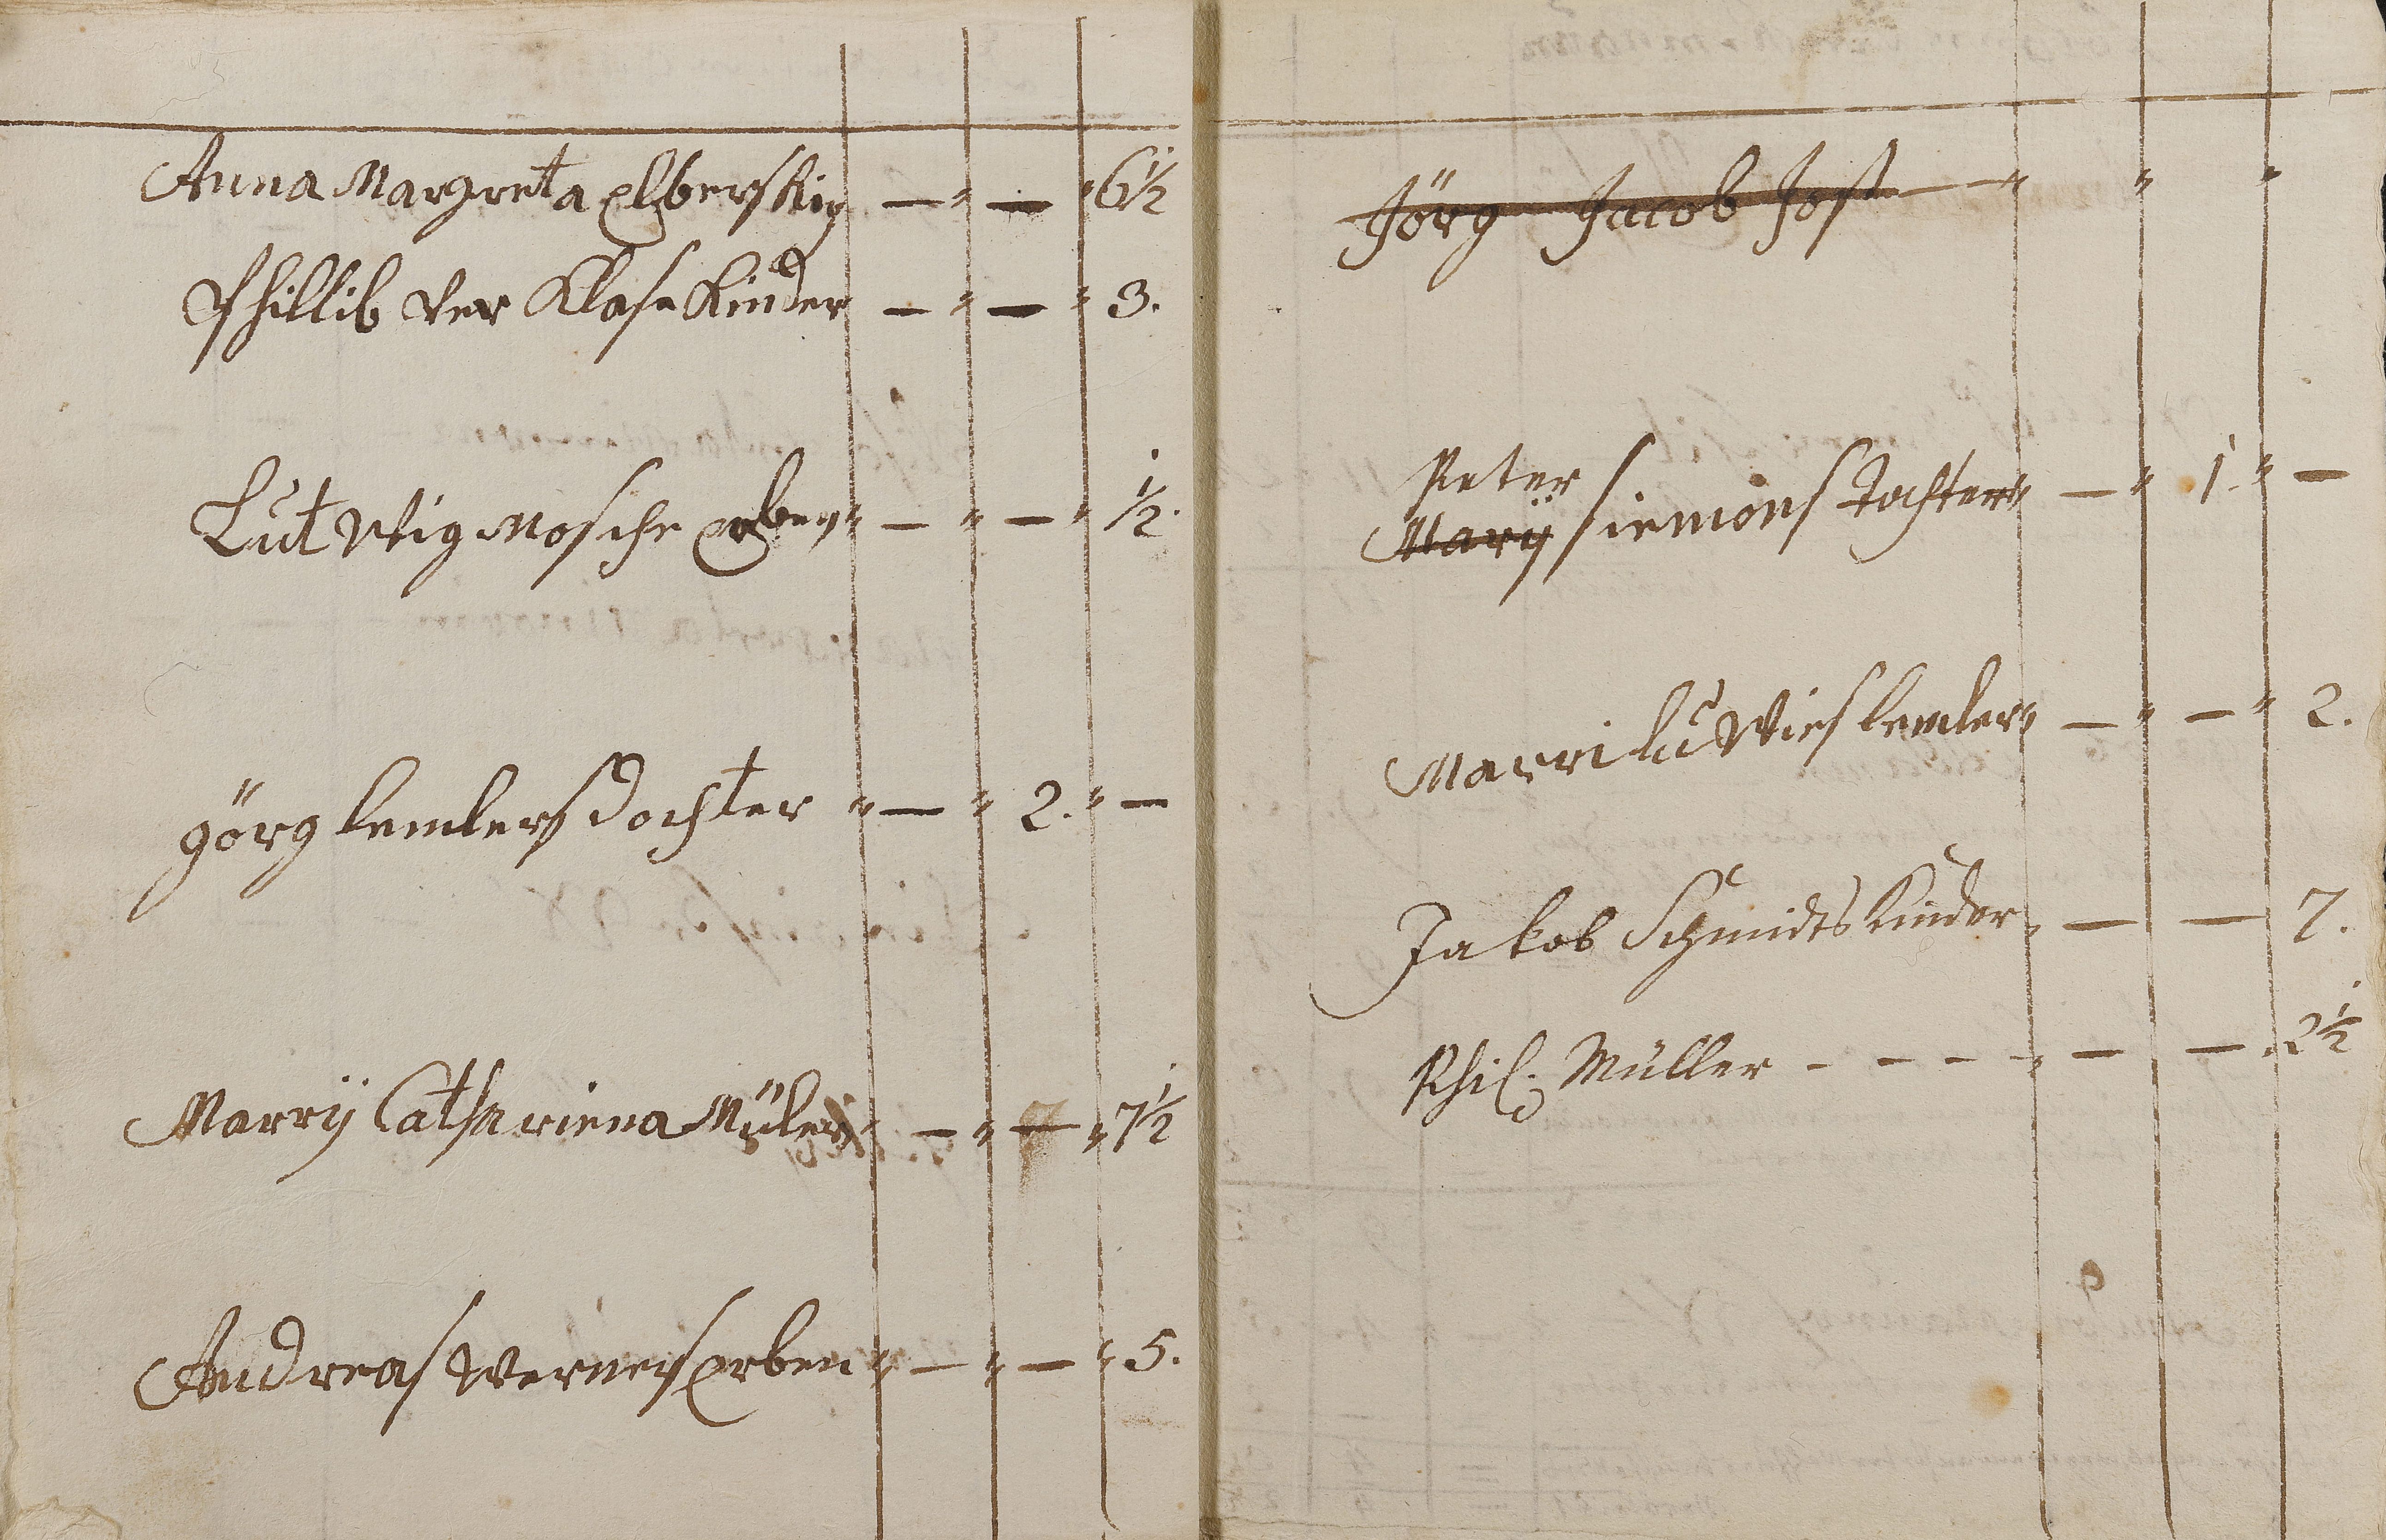 Anna Margreta Elberskirg — " — " 6½
Phillib der Klose Kinder — " — " 3.
Lutwig Mosche Erben " — " — " ½.
görg lemlers dochter " — " 2. " —
Marrÿ Cathariena Müler " — " — " 7½
Andreas Werners erben " — " — " 5.
Jörg Jacob Jost — " " "
Peter
Marÿ siemons tochter " — " 1. " —
Marri luwies lemler " — " — " 2.
Jakob Schmidts Kinder " — — 7.
Phil. Müller - - - - — — " 2½